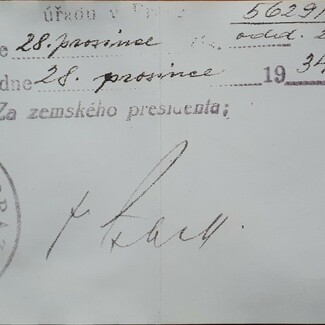 úřadu v
5629/
28. prosince odd. 2
dne 28. prosince 1934
Za zemského presidenta: